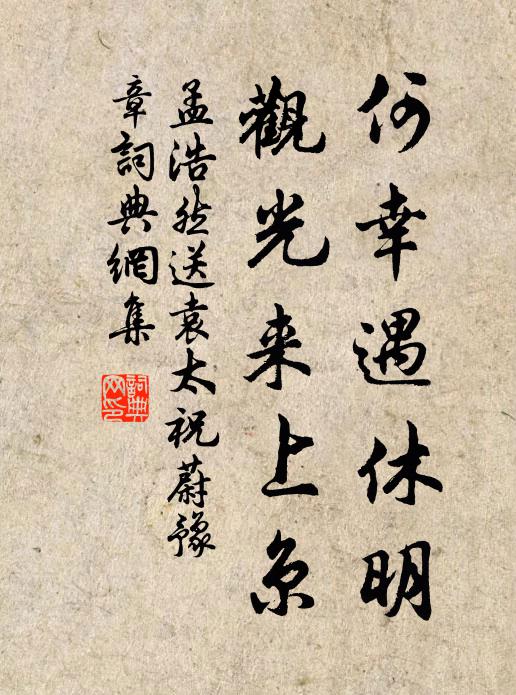 何幸遇休明
觀光来上京
孟浩然送袁太祝蔚豫
章詞典網集
詞典
网印